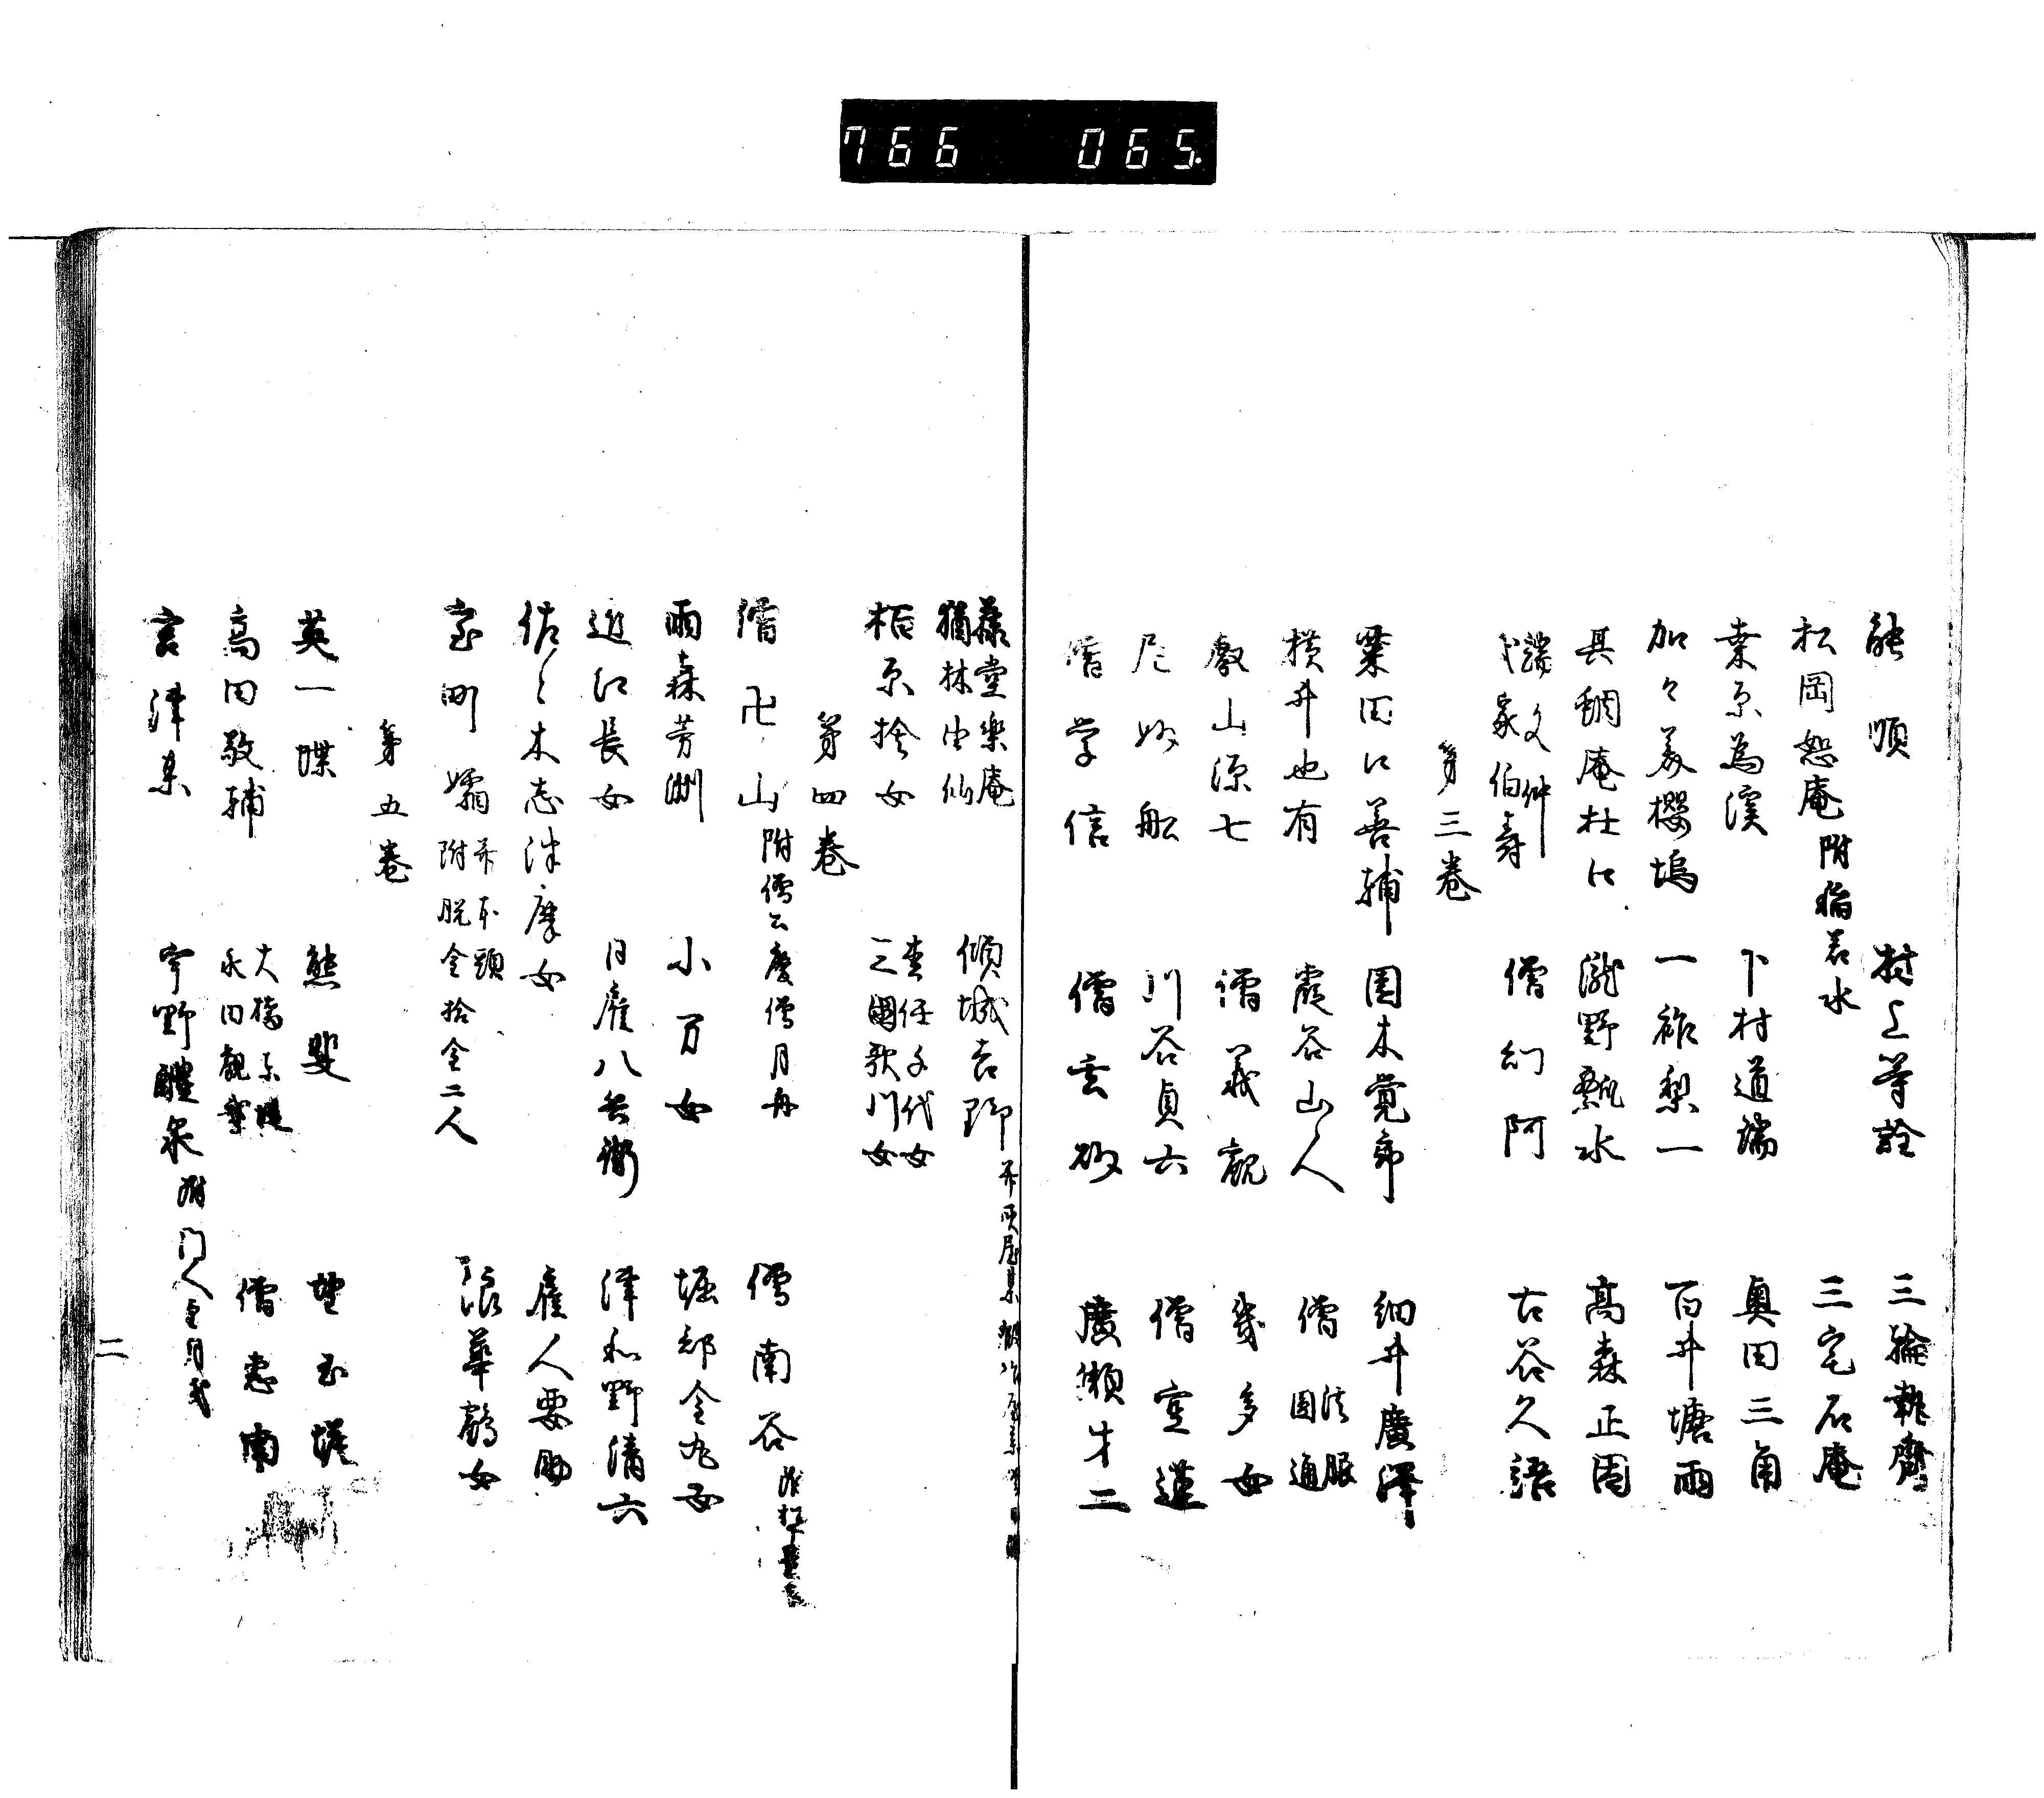 766 065
能順 村上等詮 三輪執齋
松岡恕庵附稲若水 三宅石庵
桒原為溪 下村道瑞 奥田三角
加々美櫻塢 一祚梨一 百井塘雨
其蜩庵杜口 瀧野瓢水 髙森正因
端文仲 僧幻阿 古谷久語
家伯壽
第三巻
粟田口善輔 園木覚郎 細井廣澤
横井也有 霞谷山人 僧法眼圓通
敷山源七 僧義観 幾多女
尼妙船 川谷貞六 僧空蓮
僧学信 僧玄砂 廣瀬才二
藤堂樂庵 傾城吉野
猶林由仙
栢原捨女 三國歌川女
第四巻
僧卍山附僧公慶僧月舟 僧南谷
雨森芳洲 小万女 堀部金丸女
近江長女 日雇八兵衛 津和野清六
佐々木志津摩女 雇人要助
室町孀 附脱金拾金二人 浪華鶴女
第五巻
英一蝶 熊斐 望玉蟾
髙田敬輔 大橋東堤 永田観鵞 僧恵南
宮津某 宇野醴泉附門人
二